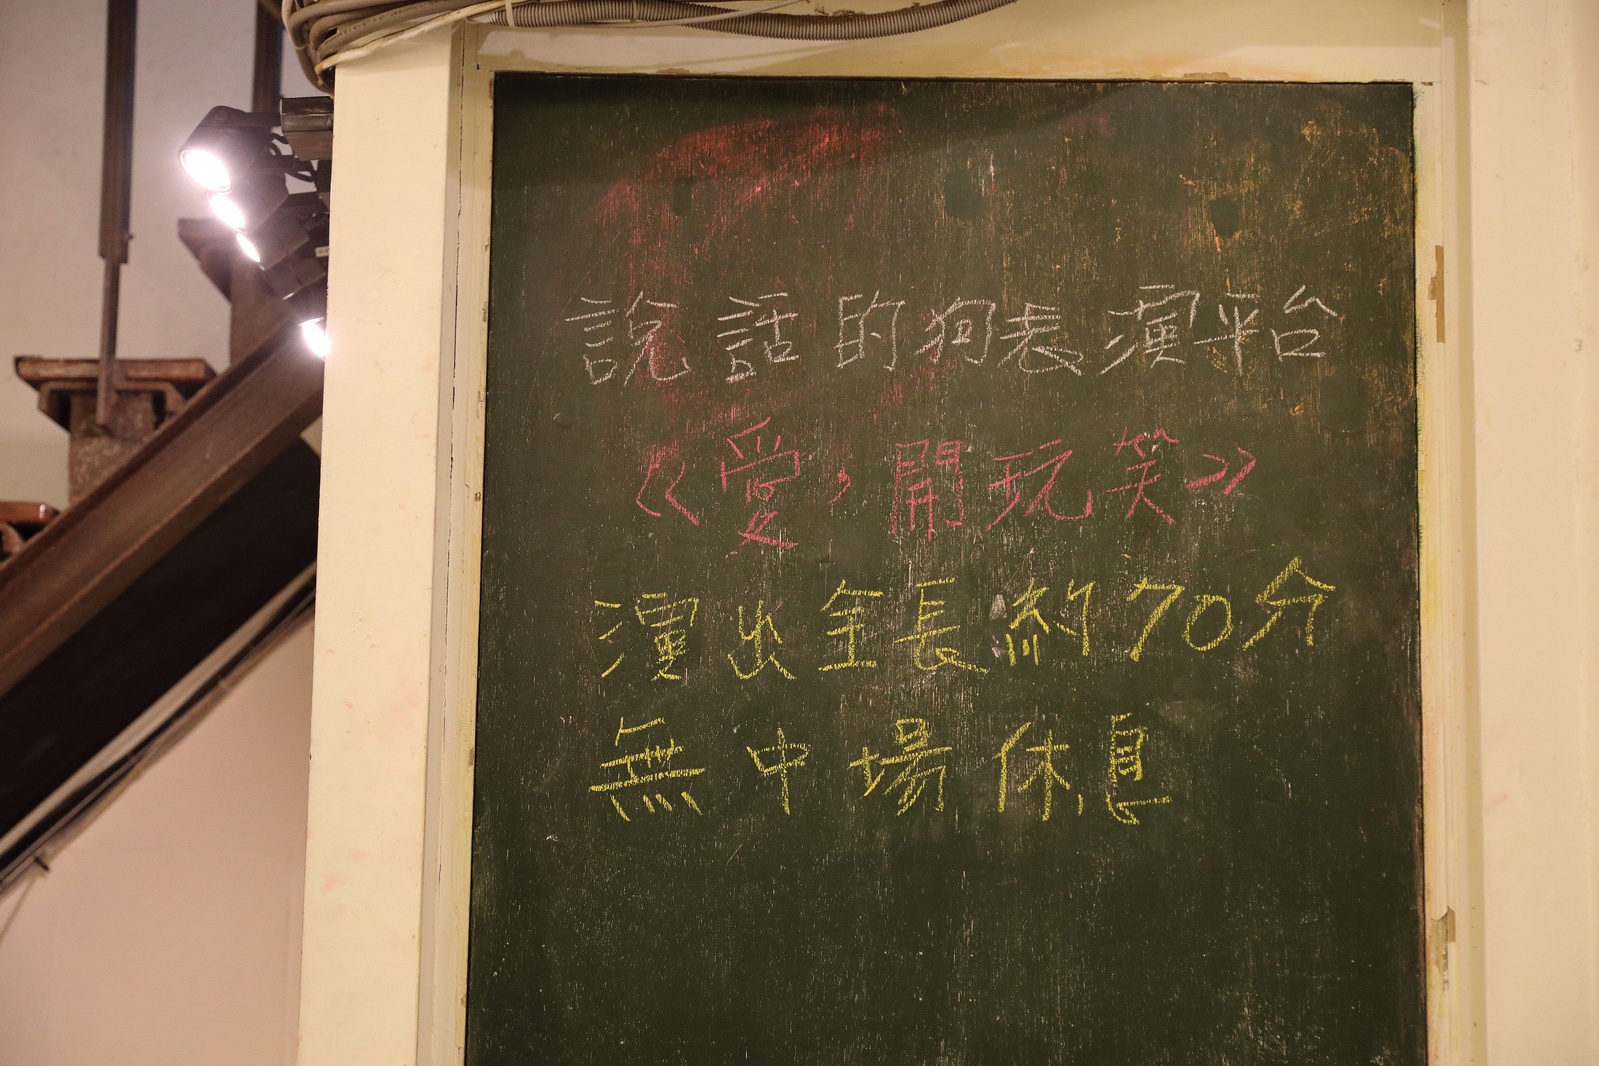 說話的狗表演平台
《愛，開玩笑》
演出全長約70分
無中場休息